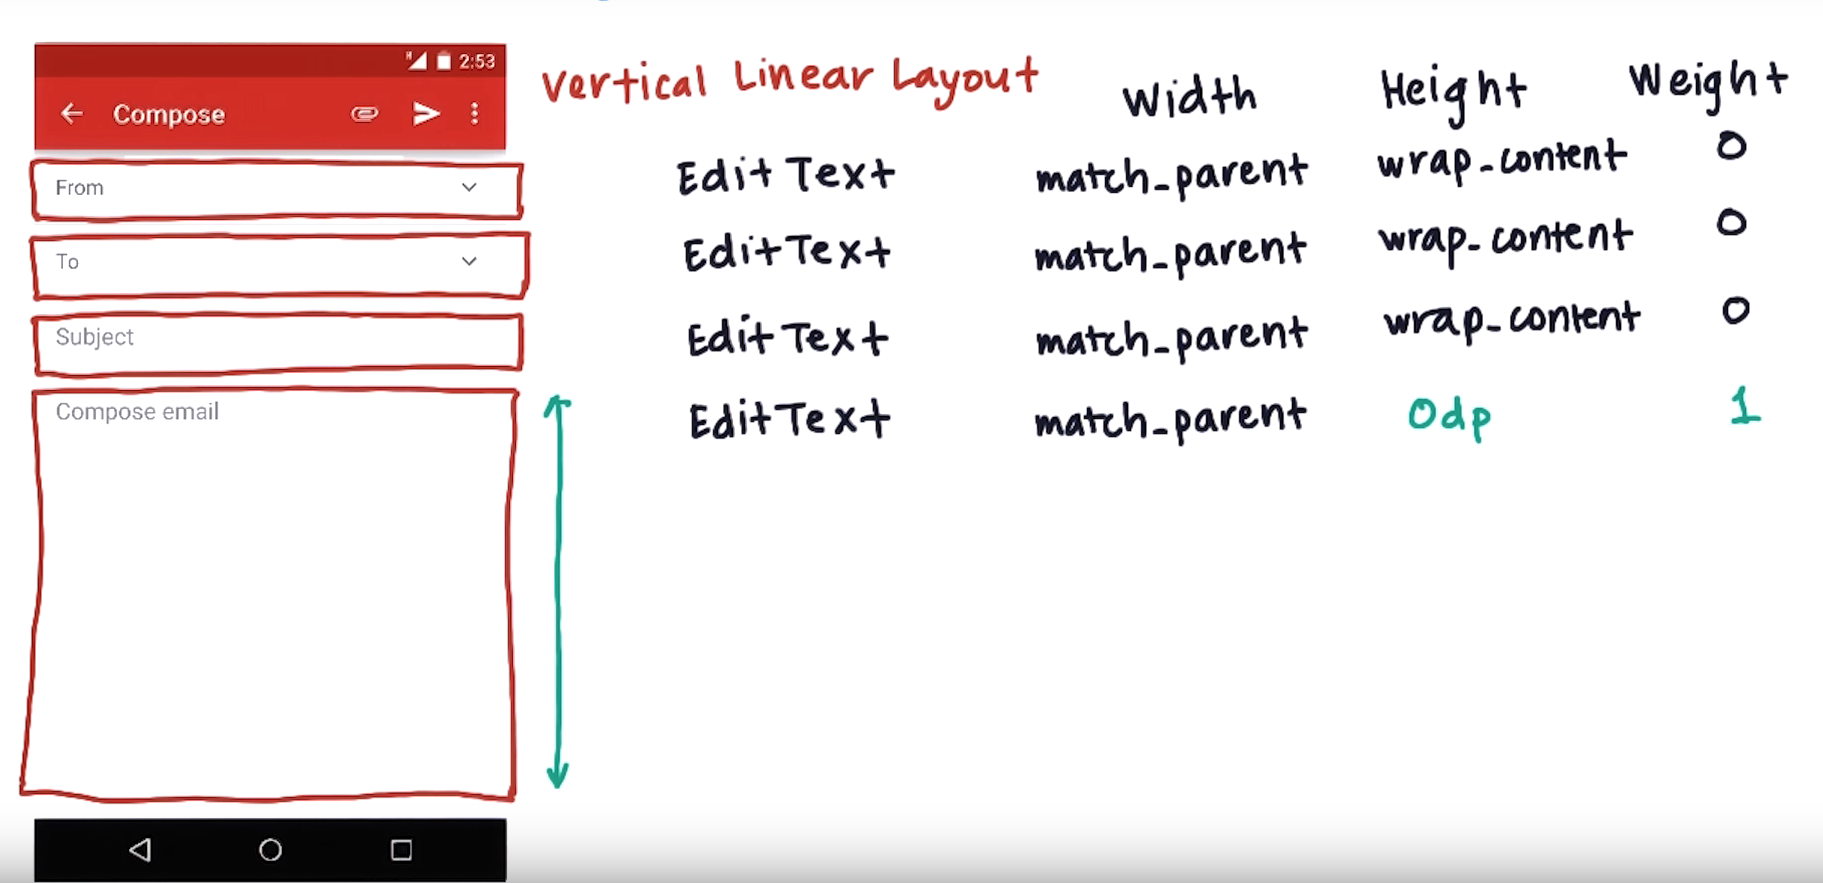 2:53
Compose
From
To
Subject
Compose email
Vertical Linear Layout
Width Height Weight
EditText match_parent wrap_content 0
EditText match_parent wrap_content 0
EditText match_parent wrap_content 0
EditText match_parent 0dp 1